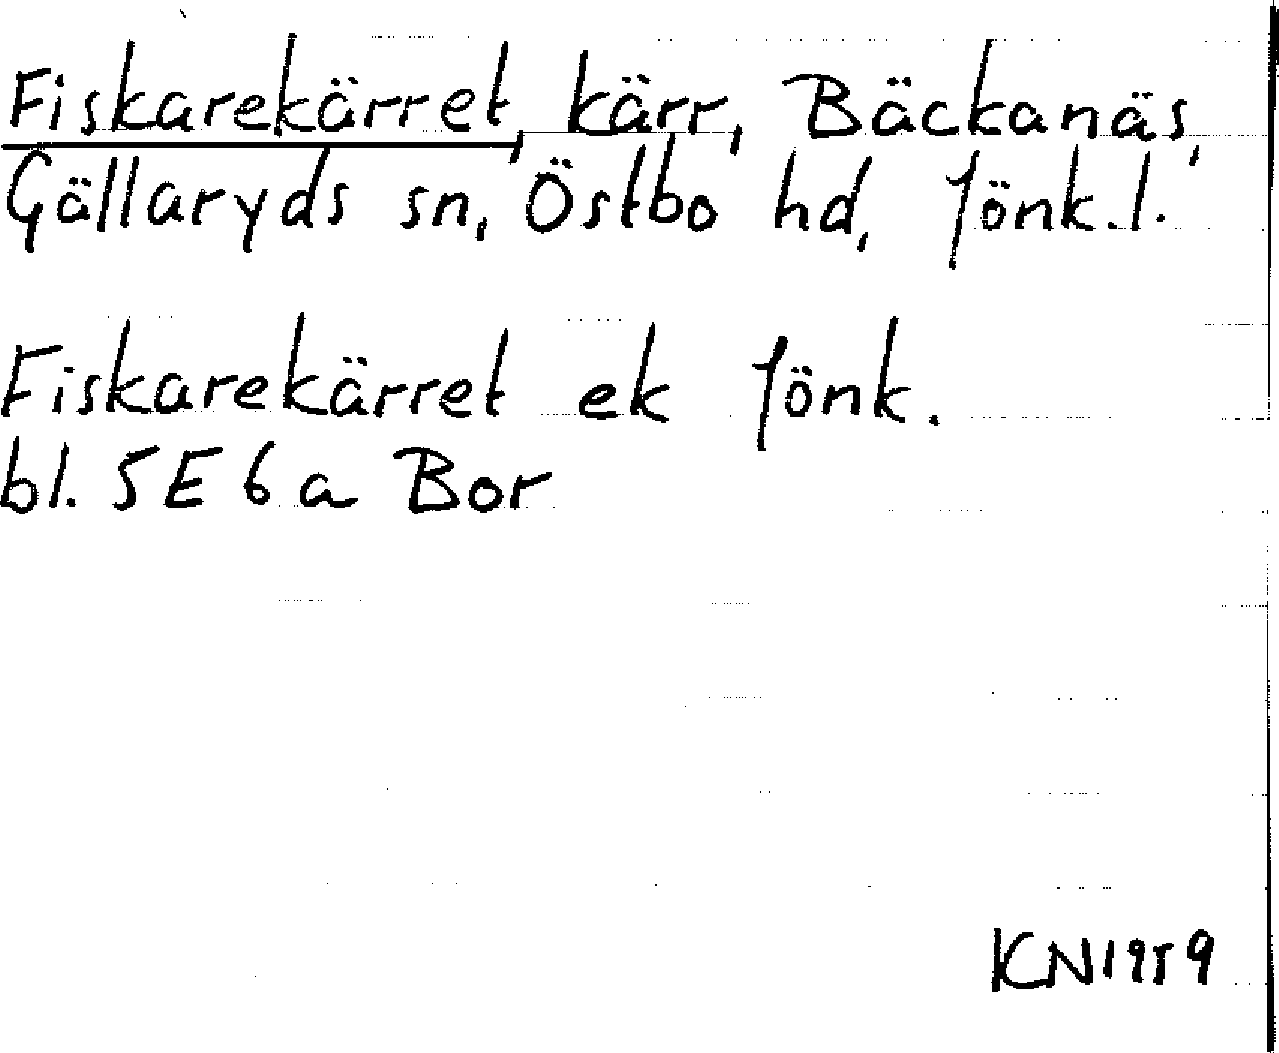 Fiskarekärret, kärr, Bäckanäs,
Gällaryds sn, Östbo hd, Jönk.l.
Fiskarekärret ek Jönk.
bl. 5E 6a Bor
KN 1959